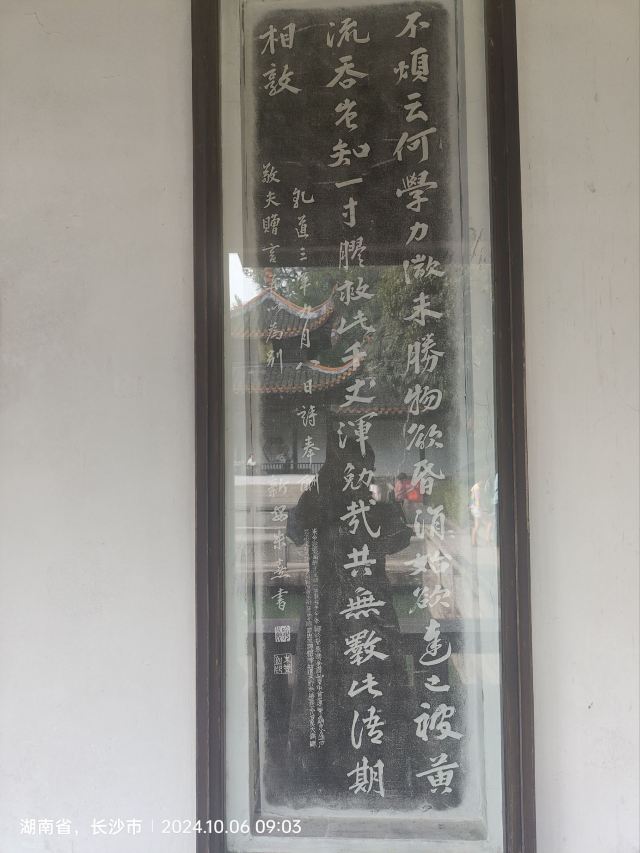 不煩云何學力微未勝物欲昏涓涓始欲達已被黃
流吞豈知一寸膠救此千丈渾勉哉共無斁此語期
相敦
乾道三年九月八日詩奉酬
敬夫贈言并以為別
新安朱熹書
湖南省，长沙市 | 2024.10.06 09:03